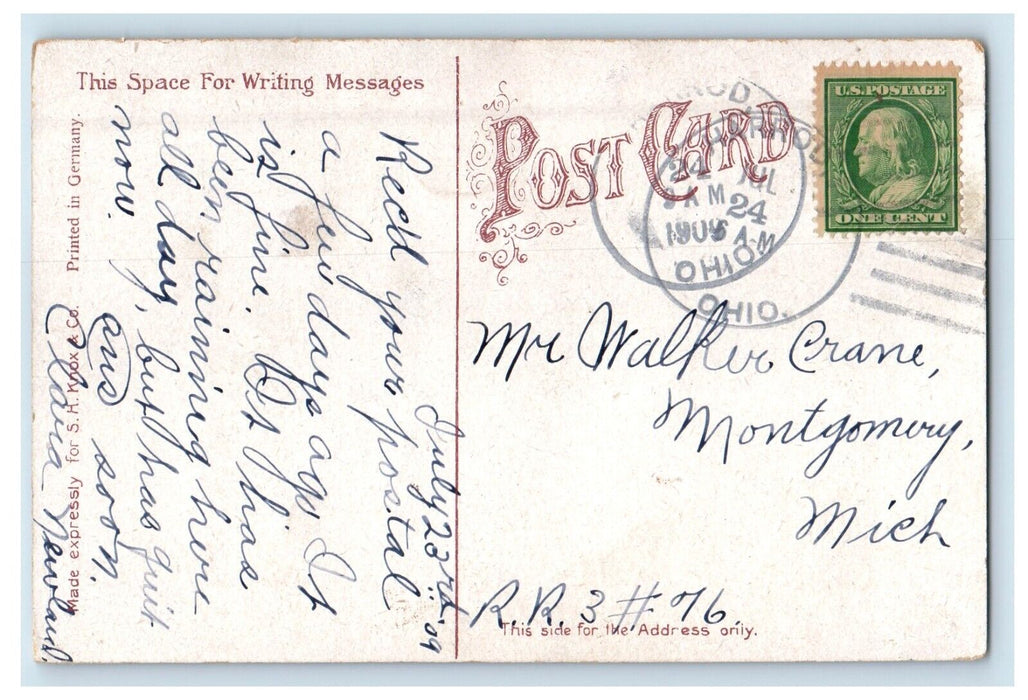 This Space For Writing Messages
July 23rd '09
Rec'd your postal
a few days ago. It
is fine. It has
been raining here
all day, but has quit
now. ans soon
Clara Newland.
Printed in Germany.
Made expressly for S. H. Knox & Co.
POST CARD
HARROD
JUL
24
A M
1909
OHIO
HARROD
JUL
24
A-M
OHIO.
U.S. POSTAGE
ONE CENT
Mr Walker Crane,
Montgomery,
Mich
R.R. 3 # 76.
This side for the Address only.